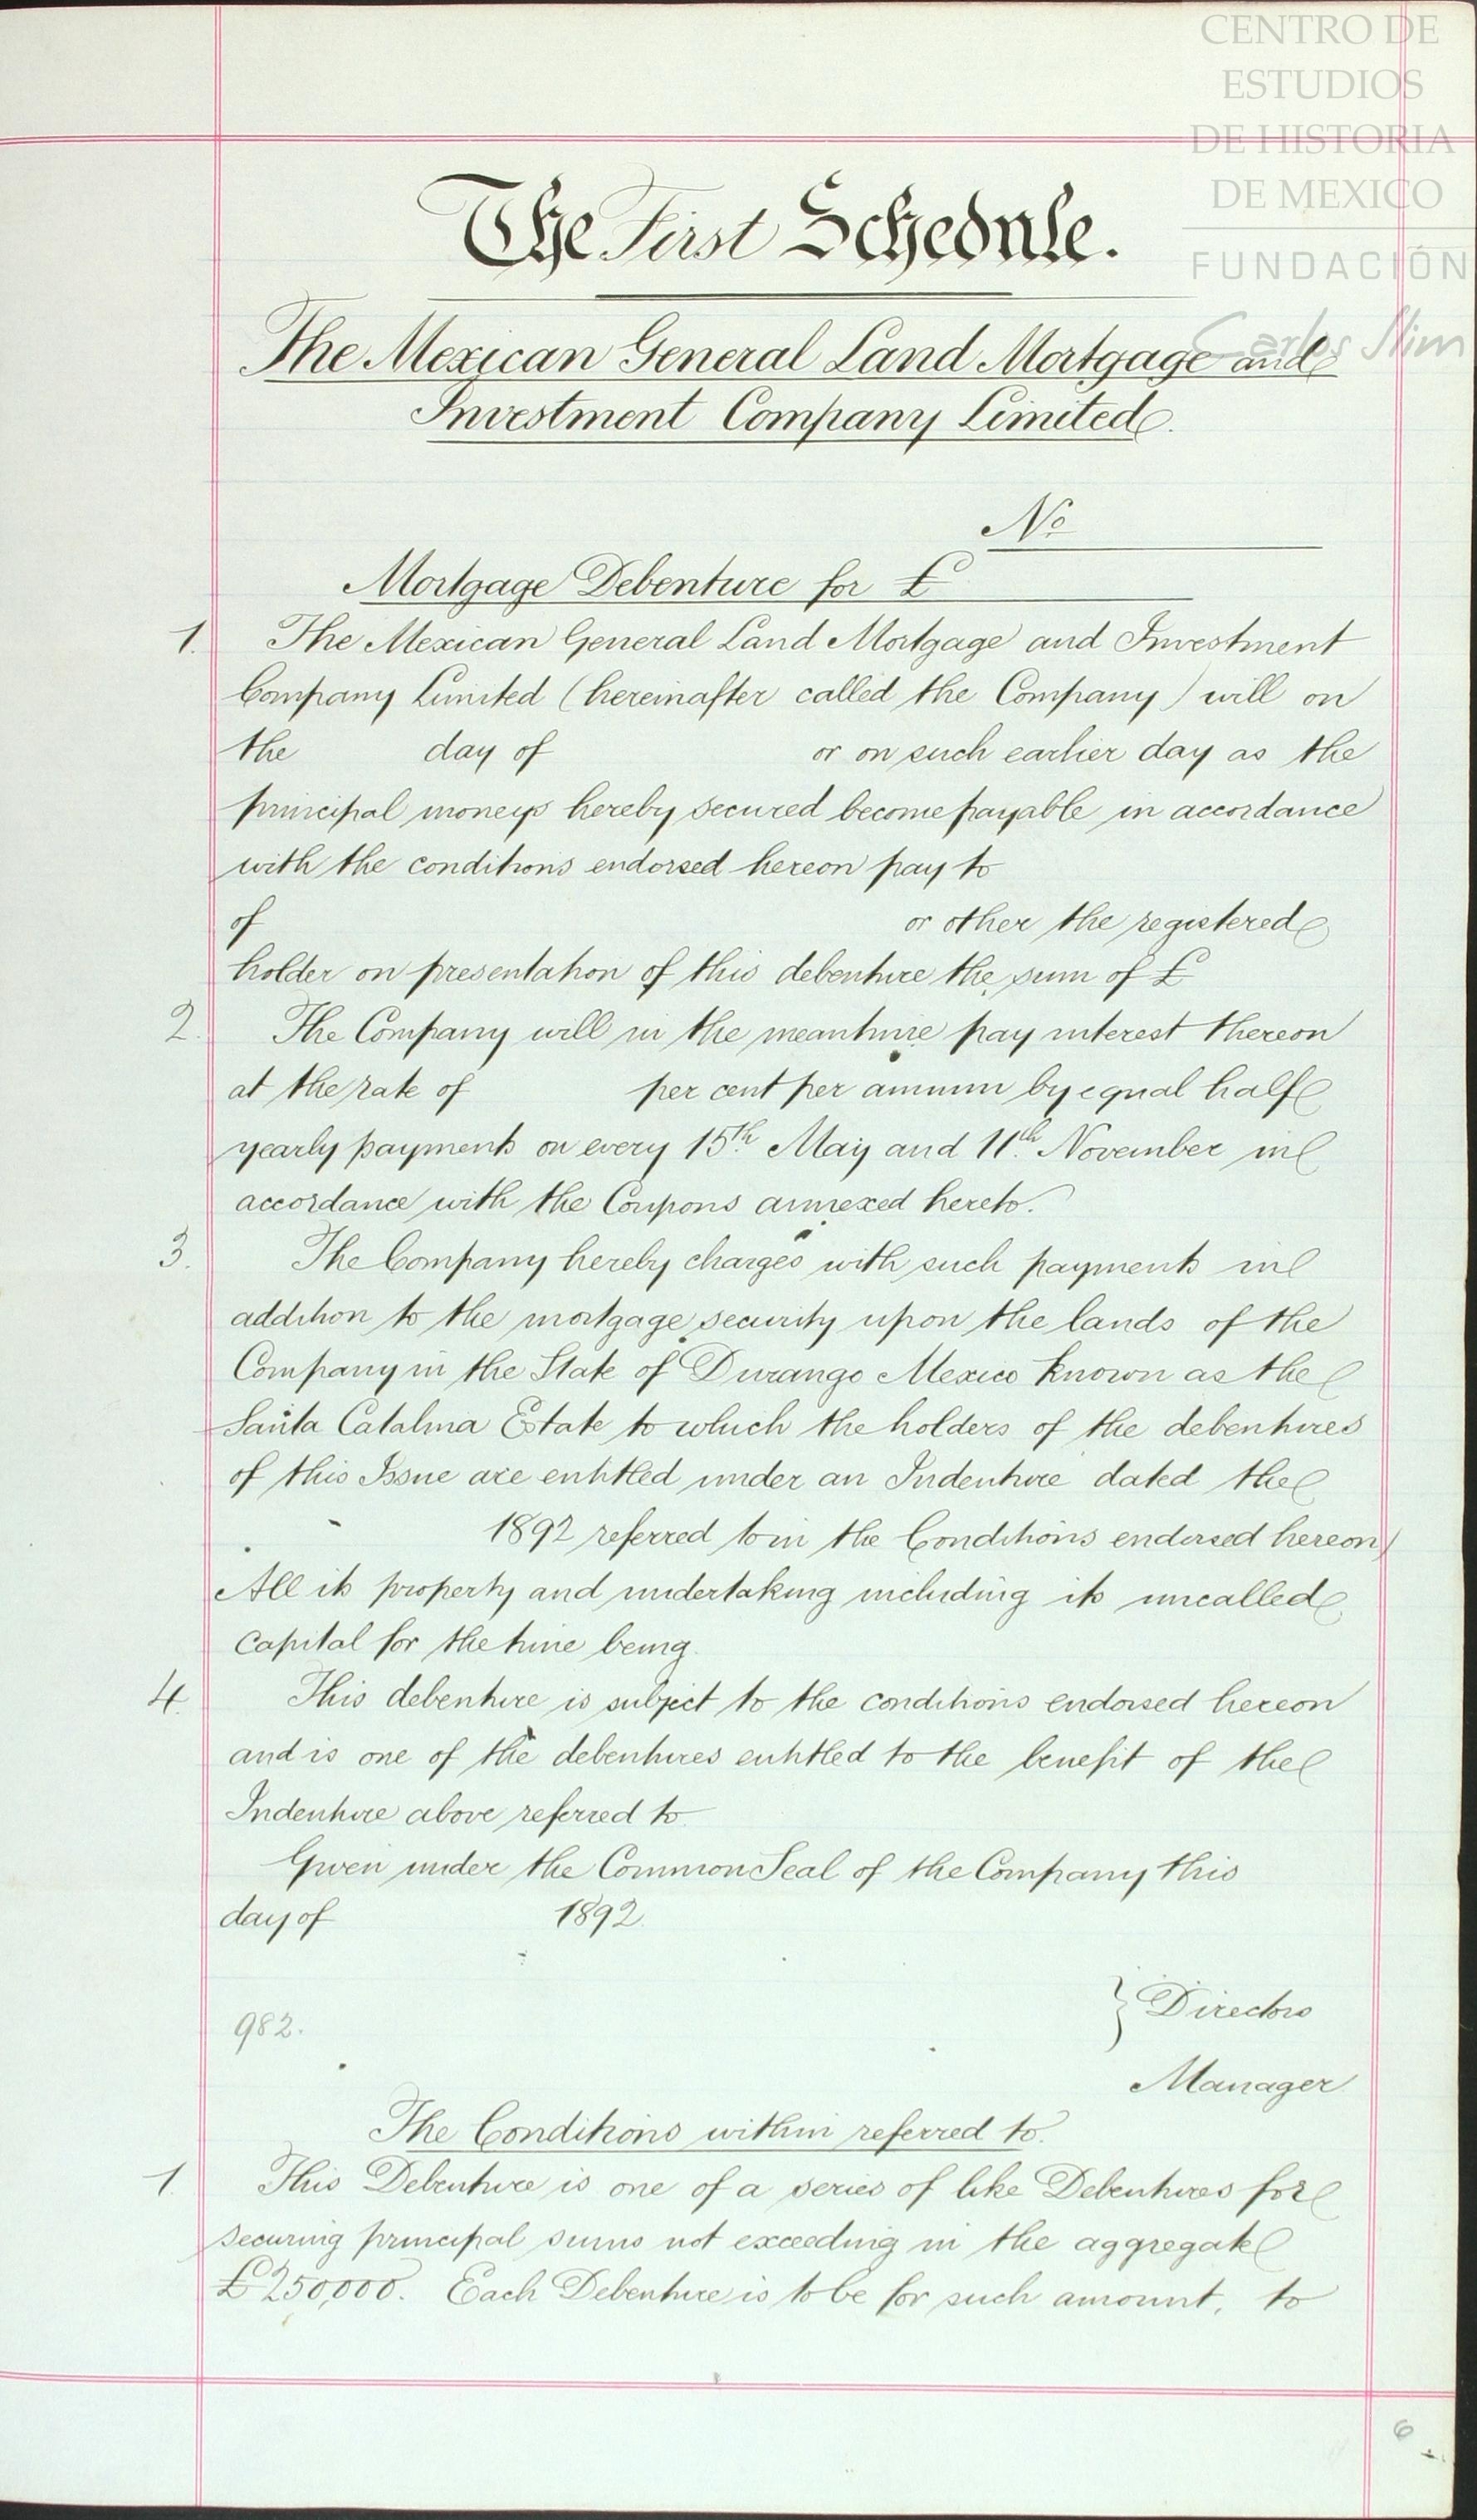 CENTRO DE
ESTUDIOS
DE HISTORIA
DE MEXICO
FUNDACIÓN
Carlos Slim
The First Schedule.
The Mexican General Land Mortgage and
Investment Company Limited.
No
Mortgage Debenture for £
1. The Mexican General Land Mortgage and Investment
Company Limited (hereinafter called the Company) will on
the day of or on such earlier day as the
principal moneys hereby secured become payable in accordance
with the conditions endorsed hereon pay to
of or other the registered
holder on presentation of this debenture the sum of £
2. The Company will in the meantime pay interest thereon
at the rate of per cent per annum by equal half
yearly payments on every 15th May and 11th November in
accordance with the Coupons annexed hereto.
3. The Company hereby charges with such payments in
addition to the mortgage security upon the lands of the
Company in the State of Durango Mexico known as the
Santa Catalina Estate to which the holders of the debentures
of this Issue are entitled under an Indenture dated the
1892 referred to in the Conditions endorsed hereon
All its property and undertaking including its uncalled
capital for the time being.
4. This debenture is subject to the conditions endorsed hereon
and is one of the debentures entitled to the benefit of the
Indenture above referred to.
Given under the Common Seal of the Company this
day of 1892.
} Directors
982.
Manager
The Conditions within referred to.
1. This Debenture is one of a series of like Debentures for
securing principal sums not exceeding in the aggregate
£250,000. Each Debenture is to be for such amount, to
6